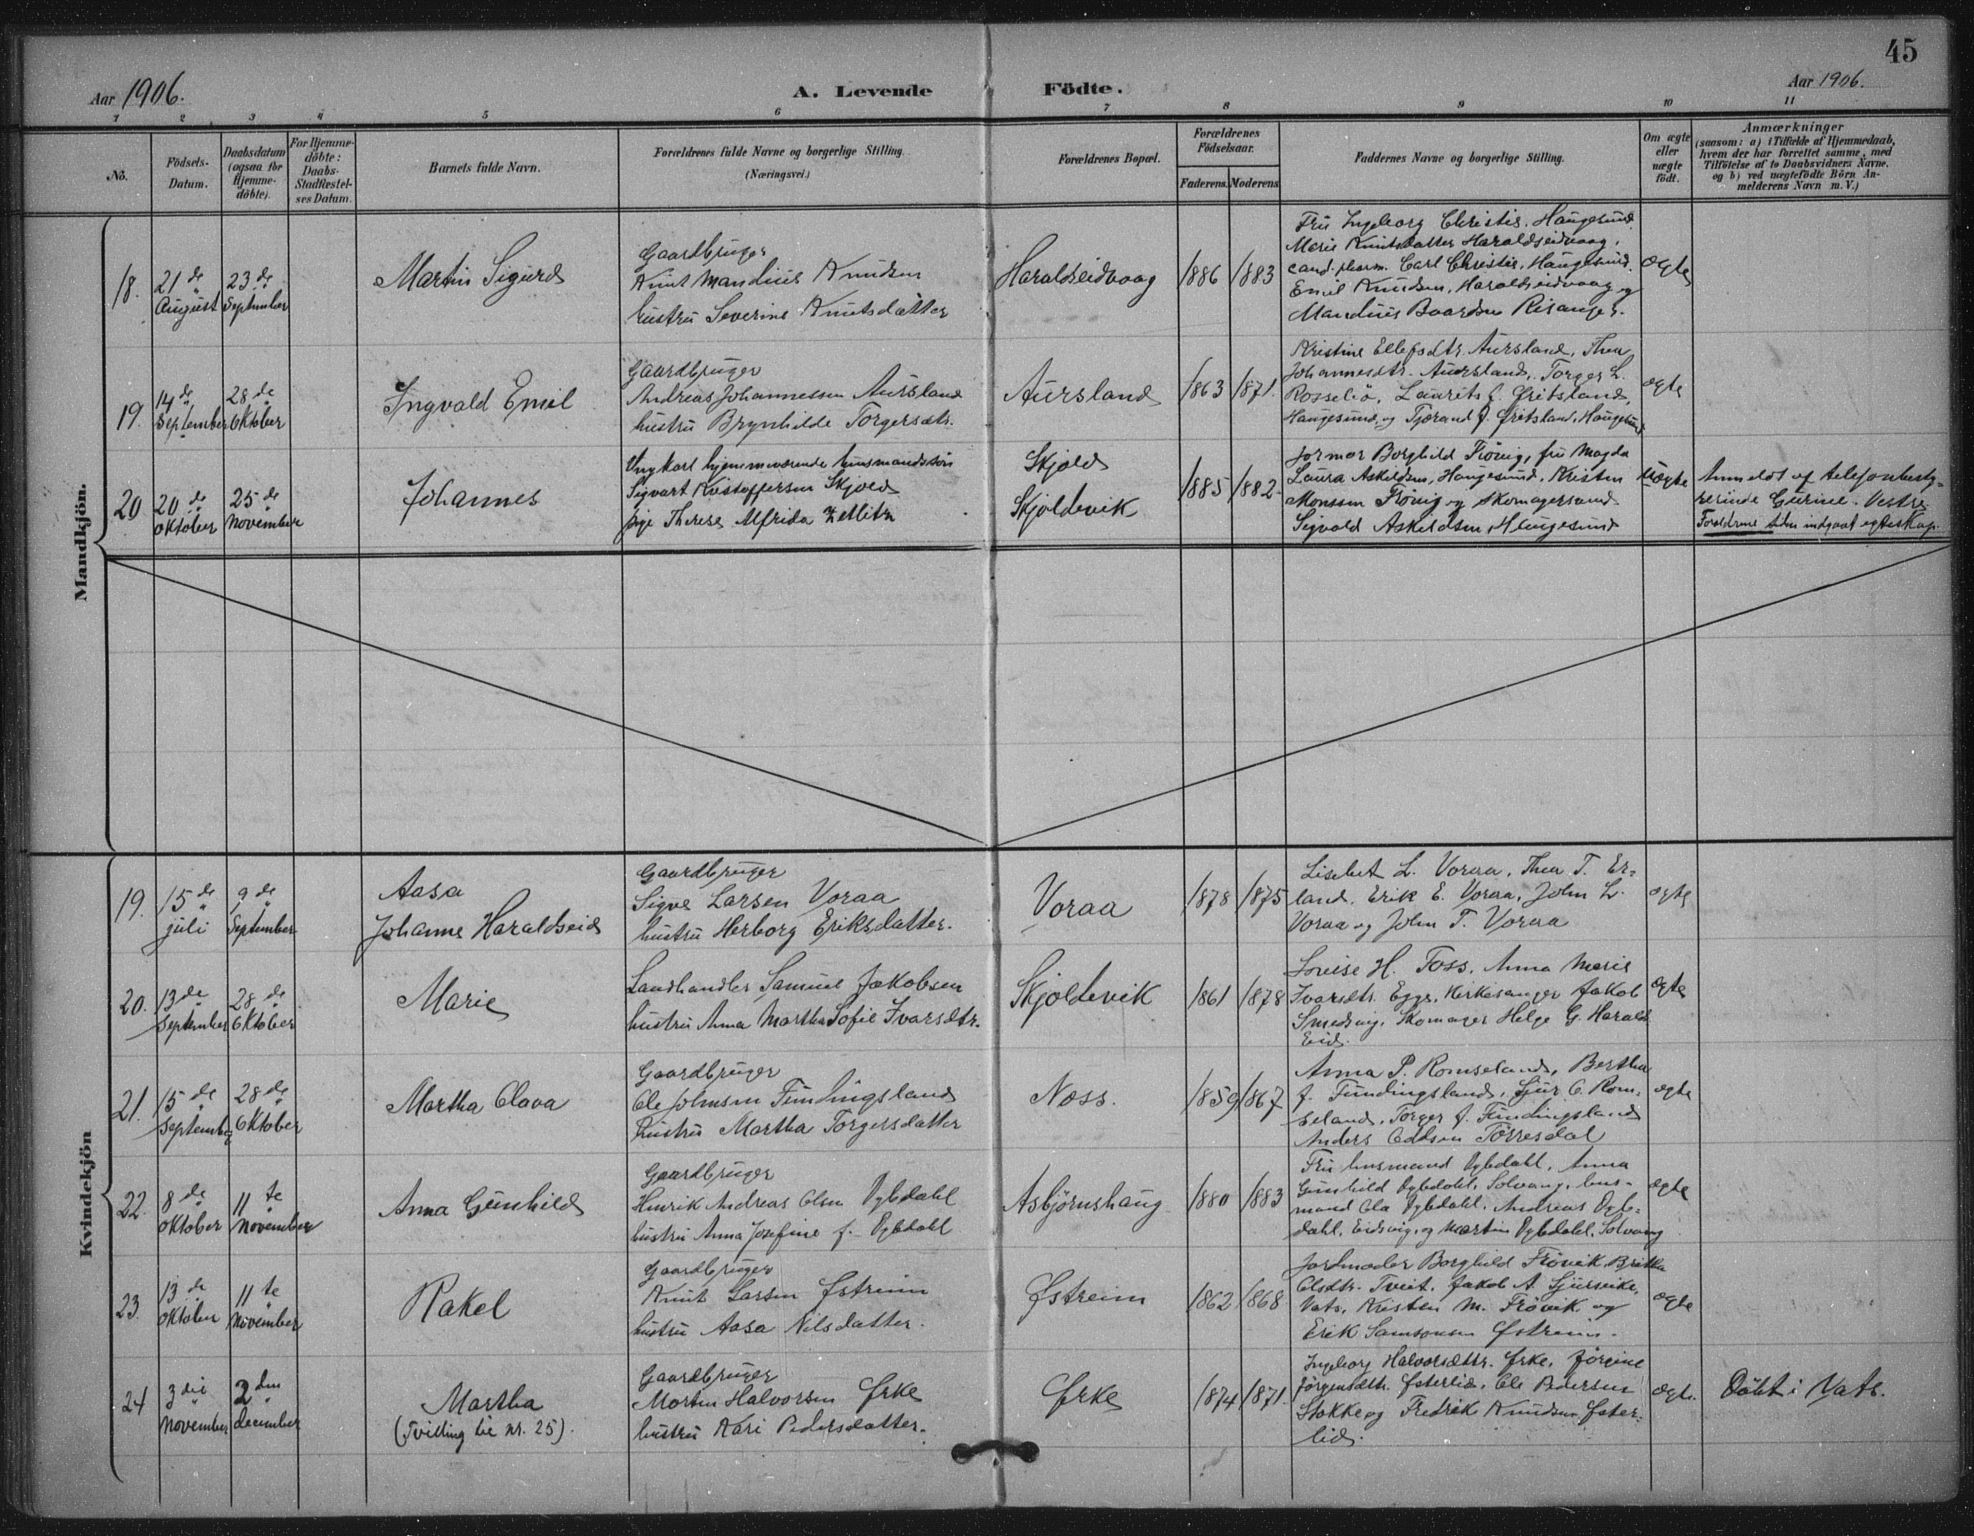 45
Aar 1906.
A. Levende Födte.
Aar 1906.
1 2 3 4 5 6 7 8 9 10 11
No.
Födsels-
Datum.
Daabsdatum
(ogsaa for
Hjemme-
döbte).
For Hjemme-
döbte:
Daabs-
Stadfæstel-
ses Datum.
Barnets fulde Navn.
Forældrenes fulde Navne og borgerlige Stilling.
(Næringsvei.)
Forældrenes Bopæl.
Forældrenes
Födselsaar.
Faderens. Moderens.
Faddernes Navne og borgerlige Stilling.
Om ægte
eller
uægte
födt.
Anmærkninger
(saasom: a) i Tilfælde af Hjemmedaab,
hvem der har forrettet samme, med
Tilföielse af to Daabsvidners Navne.
og b) ved uægtefödte Börn An-
melderens Navn m. V.)
Mandkjön.
18.
21de
August
23de
September
Martin Sigurd
Gaardbruger
Knut Mandius Knudsen
hustru Severine Knutsdatter
Haraldseidvaag
1886
1883
Fru Ingeborg Christie, Haugesund
Merie Knutsdatter Haraldseidvaag,
cand. pharm. Carl Christie, Haugesund.
Emil Knudsen, Haraldseidvaag og
Mandius Baardsen Risanger.
ægte
19.
14de
September
28de
Oktober
Ingvald Emil
Gaardbruger
Andreas Johannessen Aursland
hustru Brynhilde Torgersdtr.
Aursland
1863
1871.
Kristine Ellefsdtr. Aursland, Thea
Johannesdtr. Aursland, Torger L.
Rosselid, Laurits J. Gritsland,
Haugesund, og Tjerand J. Gritsland, Haugesund
ægte
20
20de
Oktober
25de
November
Johannes
Ungkarl hjemmeværende husmandssön
Sigvart Kristoffersen Skjold
pige Therese Alfrida Zetlitz
Skjold
Skjoldevik
1885
1882
Jormor Borghild Frövig, fru Magda
Laura Askeldsen, Haugesund, Kristen
Monssen Frövig og Skomagersvend
Sigvald Askeldsen, Haugesund
uægte
Anmeldt af telefonbesty-
rerinde Gurine Vestre
Foreldrene siden indgaat egteskap.
Kvindekjön
19.
15de
juli
9de
September
Aasa
Johanne Haraldseid
Gaardbruger
Sigve Larsen Voraa
hustru Herborg Eriksdatter.
Voraa
1878
1875
Lisebet L. Voraa, Thea T. Er-
land, Erik E. Voraa, John L.
Voraa og John T. Voraa
ægte
20.
13de
September
28de
Oktober
Marie
Landhandler Samuel Jakobsen
hustru Anna Martha Sofie Ivarsdtr.
Skjoldevik
1861
1878
Lovise H. Foss, Anna Marie
Ivarsdtr. Egge, Kirkesanger Jakob
Smedsvig, Skomager Helge G. Harald
Eid.
ægte
21.
15de
September
28de
Oktober
Martha Olava
Gaardbruger
Ole Johnsen Fundingsland
hustru Martha Torgersdatter
Næss.
1859
1867
Anna P. Romseland, Bertha
J. Fundingsland, Sjur O. Rom-
seland, Torger J. Fundingsland
Anders Oddsen Törresdal
ægte
22.
8de
Oktober
11te
November
Anna Gunhild
Gaardbruger
Henrik Andreas Olsen Dybdahl
hustru Anna Josefine f. Dybdahl
Asbjörnshaug
1880
1883
Fru husmand Dybdahl, Anna
Gunhild Dybdahl, Solvang, hus-
mand Ola Dybdahl, Andreas Dyb-
dahl, Eidsvig, og Martin Dybdahl, Solvang
ægte
23.
13de
Oktober
11te
November
Rakel
Gaardbruger
Knut Larsen Østreim
hustru Aasa Nilsdatter.
Østreim
1862
1868
Jordmoder Borghild Frövik, Britha
Olsdtr. Tveit, Jakob A. Sjurseike,
Vats, Kristen M. Frövik og
Erik Samsonsen Østreim.
ægte
24
3die
November
2den
december
Martha
(Tvilling til nr. 25).
Gaardbruger
Morten Halvorsen Ørke
hustru Kari Pedersdatter.
Ørke
1874
1871.
Ingeborg Halvorsdtr. Ørke, Jörgine
Jörgensdtr. Østerlid, Ole Pedersen
Stokke og Fredrik Knudsen Øster-
lid.
ægte.
Döbt i Vats.